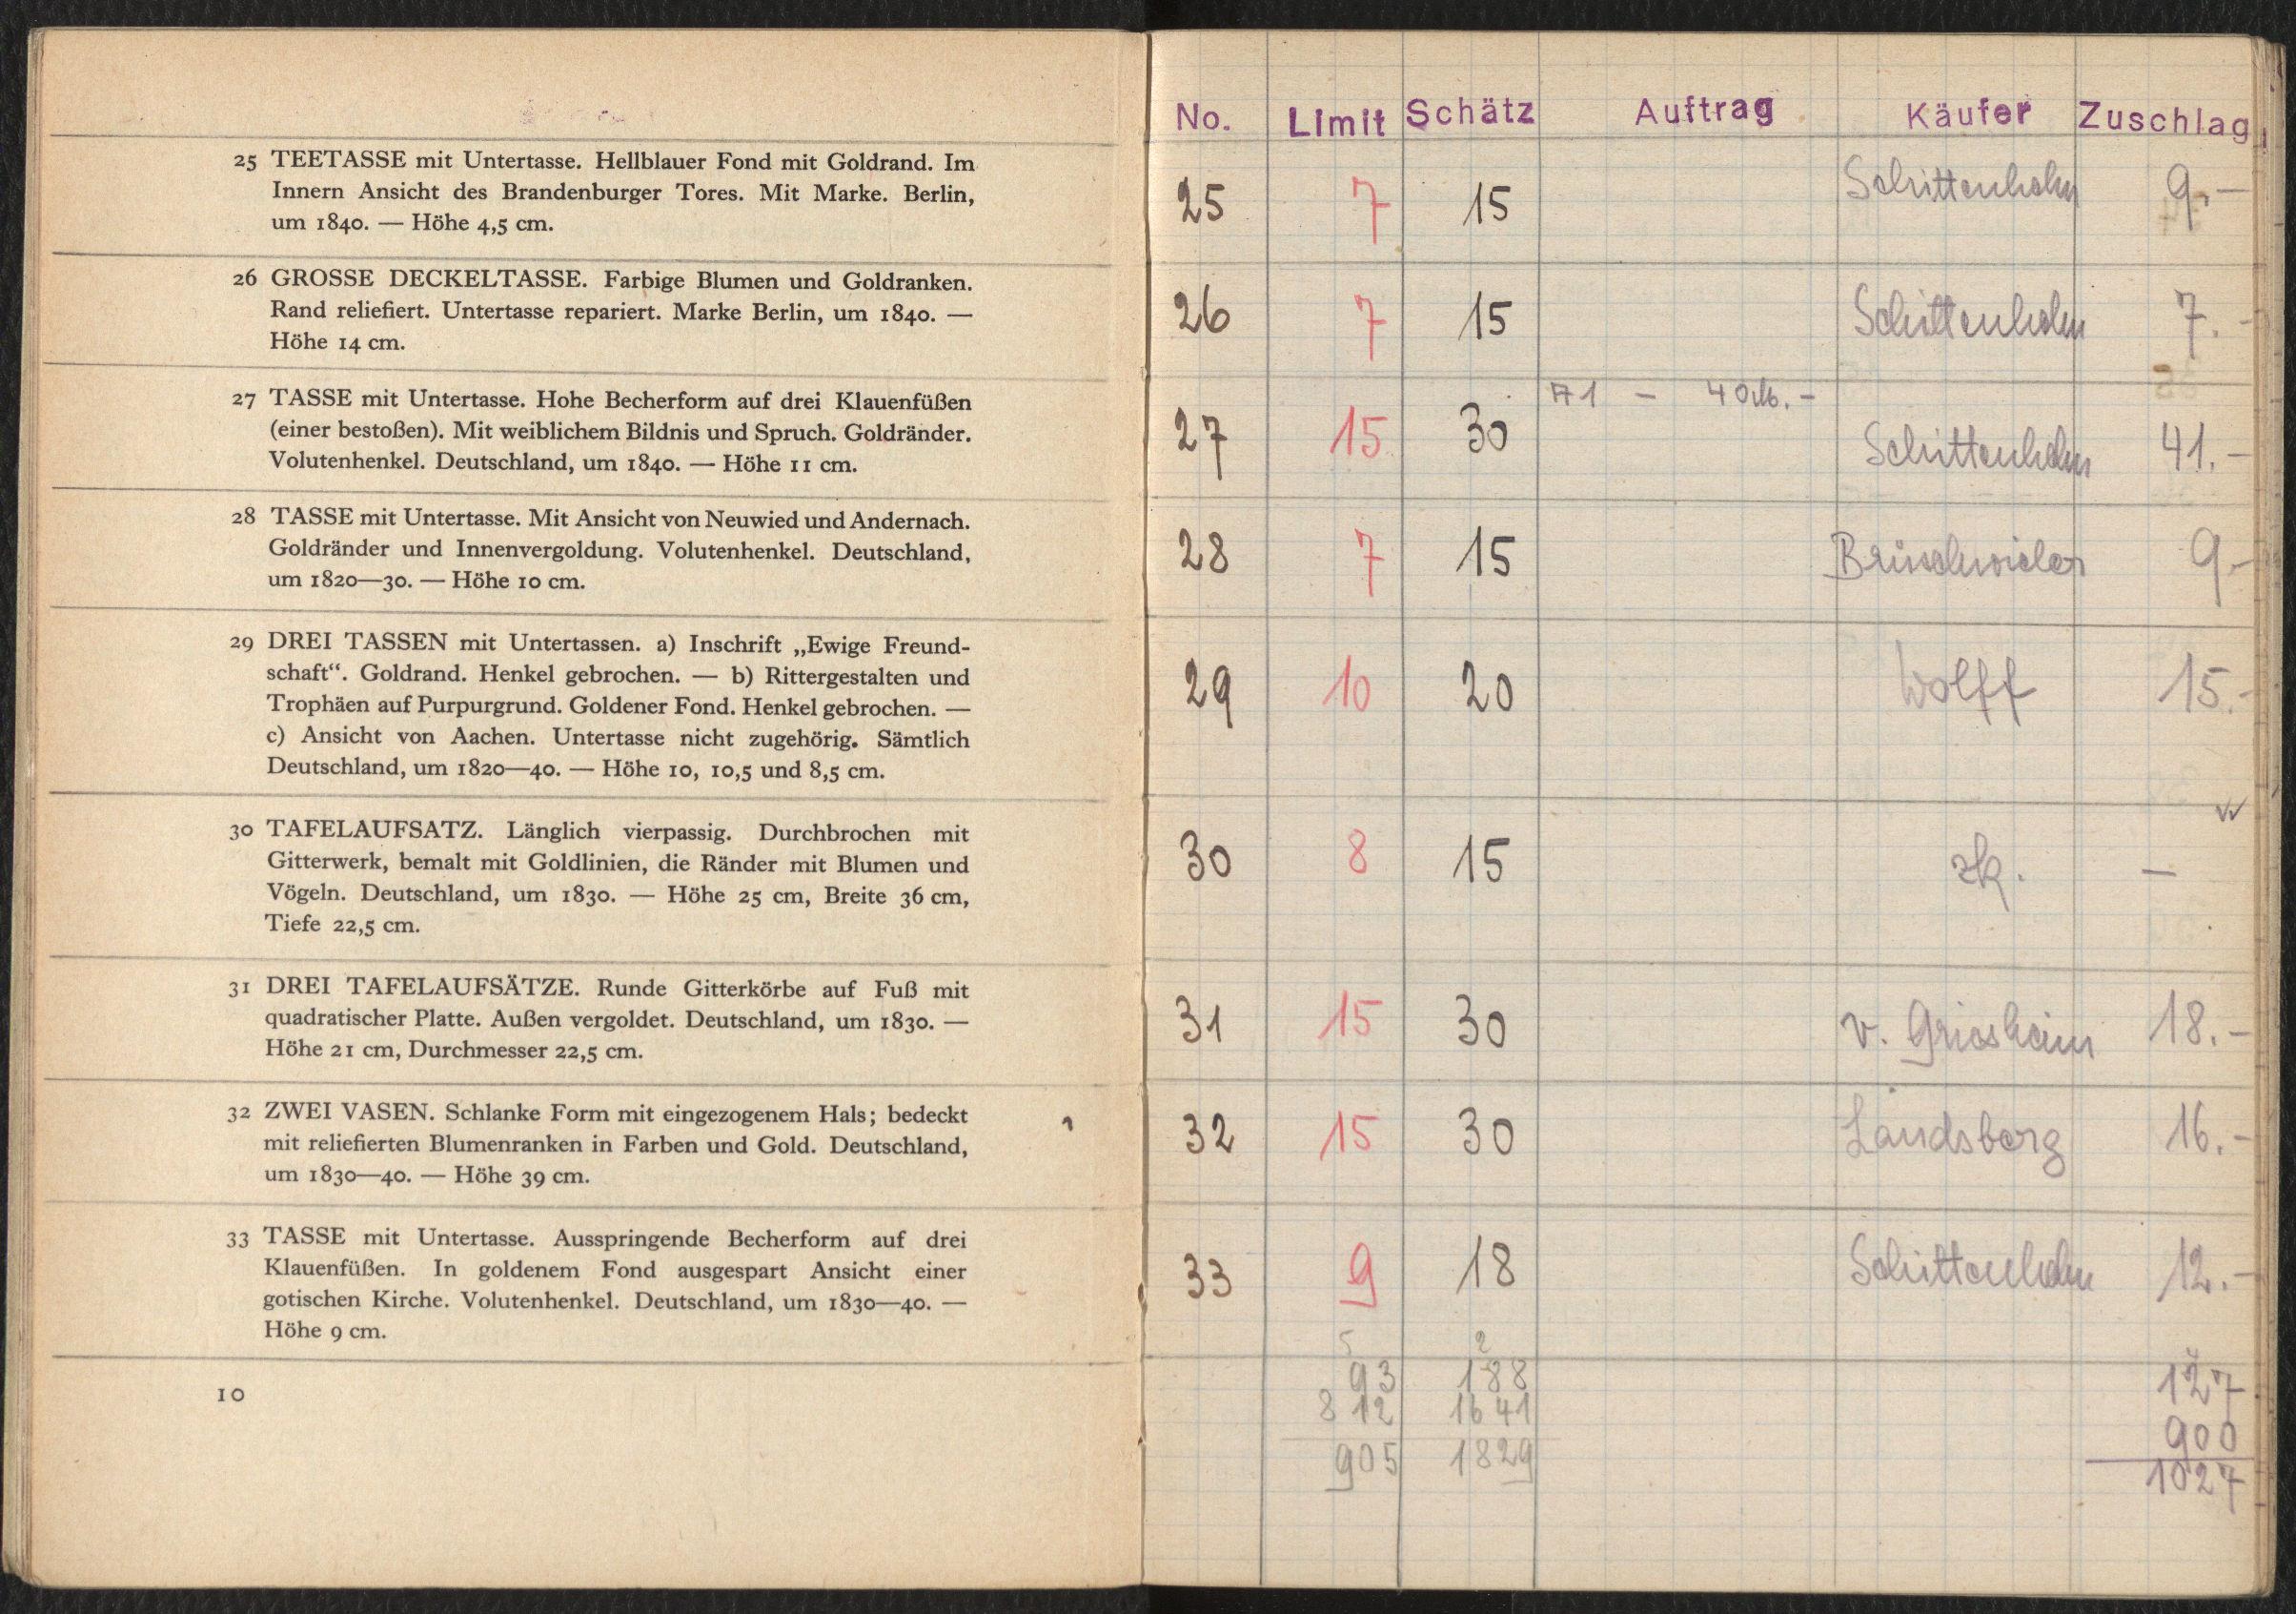 25 TEETASSE mit Untertasse. Hellblauer Fond mit Goldrand. Im
Innern Ansicht des Brandenburger Tores. Mit Marke. Berlin,
um 1840. — Höhe 4,5 cm.
26 GROSSE DECKELTASSE. Farbige Blumen und Goldranken.
Rand reliefiert. Untertasse repariert. Marke Berlin, um 1840. —
Höhe 14 cm.
27 TASSE mit Untertasse. Hohe Becherform auf drei Klauenfüßen
(einer bestoßen). Mit weiblichem Bildnis und Spruch. Goldränder.
Volutenhenkel. Deutschland, um 1840. — Höhe 11 cm.
28 TASSE mit Untertasse. Mit Ansicht von Neuwied und Andernach.
Goldränder und Innenvergoldung. Volutenhenkel. Deutschland,
um 1820—30. — Höhe 10 cm.
29 DREI TASSEN mit Untertassen. a) Inschrift „Ewige Freund-
schaft“. Goldrand. Henkel gebrochen. — b) Rittergestalten und
Trophäen auf Purpurgrund. Goldener Fond. Henkel gebrochen. —
c) Ansicht von Aachen. Untertasse nicht zugehörig. Sämtlich
Deutschland, um 1820—40. — Höhe 10, 10,5 und 8,5 cm.
30 TAFELAUFSATZ. Länglich vierpassig. Durchbrochen mit
Gitterwerk, bemalt mit Goldlinien, die Ränder mit Blumen und
Vögeln. Deutschland, um 1830. — Höhe 25 cm, Breite 36 cm,
Tiefe 22,5 cm.
31 DREI TAFELAUFSÄTZE. Runde Gitterkörbe auf Fuß mit
quadratischer Platte. Außen vergoldet. Deutschland, um 1830. —
Höhe 21 cm, Durchmesser 22,5 cm.
32 ZWEI VASEN. Schlanke Form mit eingezogenem Hals; bedeckt
mit reliefierten Blumenranken in Farben und Gold. Deutschland,
um 1830—40. — Höhe 39 cm.
33 TASSE mit Untertasse. Ausspringende Becherform auf drei
Klauenfüßen. In goldenem Fond ausgespart Ansicht einer
gotischen Kirche. Volutenhenkel. Deutschland, um 1830—40. —
Höhe 9 cm.
10
No. Limit Schätz Auftrag Käufer Zuschlag
25 7 15 Schittenhelm 9.—
26 7 15 Schittenhelm 7.-
71 - 40 M. -
27 15 30 Schittenhelm 41.-
28 7 15 Brüschwieler 9.-
29 10 20 Wolff 15.-
30 8 15 zk. —
31 15 30 v. Griesheim 18.-
32 15 30 Landsberg 16.-
33 9 18 Schittenhelm 12.-
5 2
93 188 127
812 1641 900
905 1829 1027